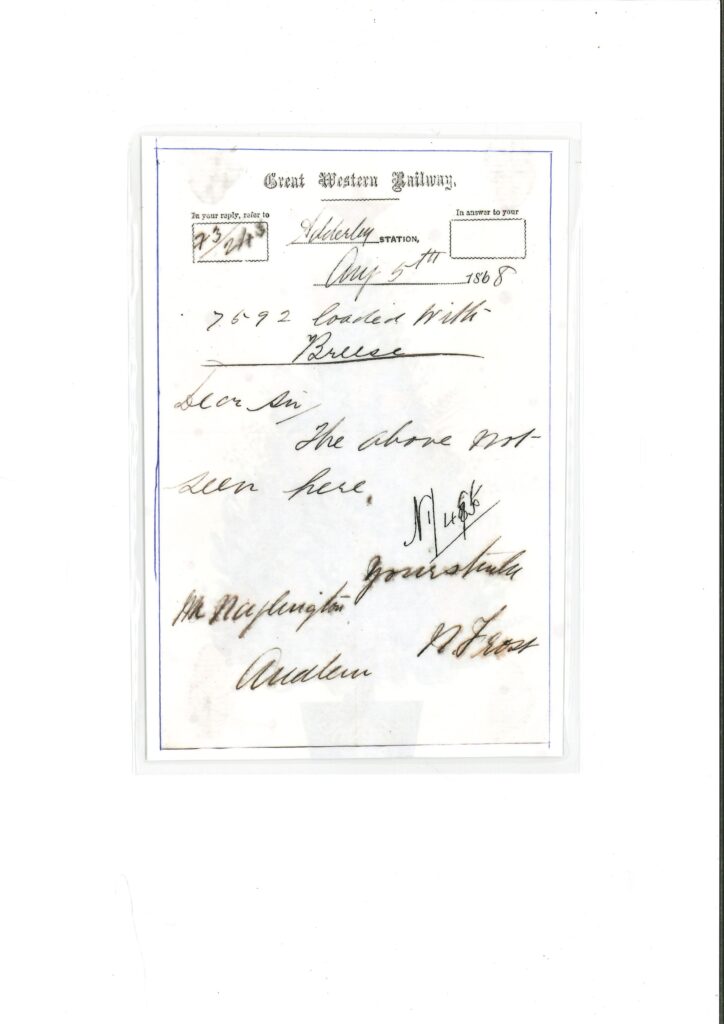 Great Western Railway.
In your reply, refer to
In answer to your
Adderley STATION,
Aug 5th 1868
7592 loaded with
Breese
Dear Sir
The above not
seen here.
Yours truly
Mr Naylington
N. Frost
Audlem